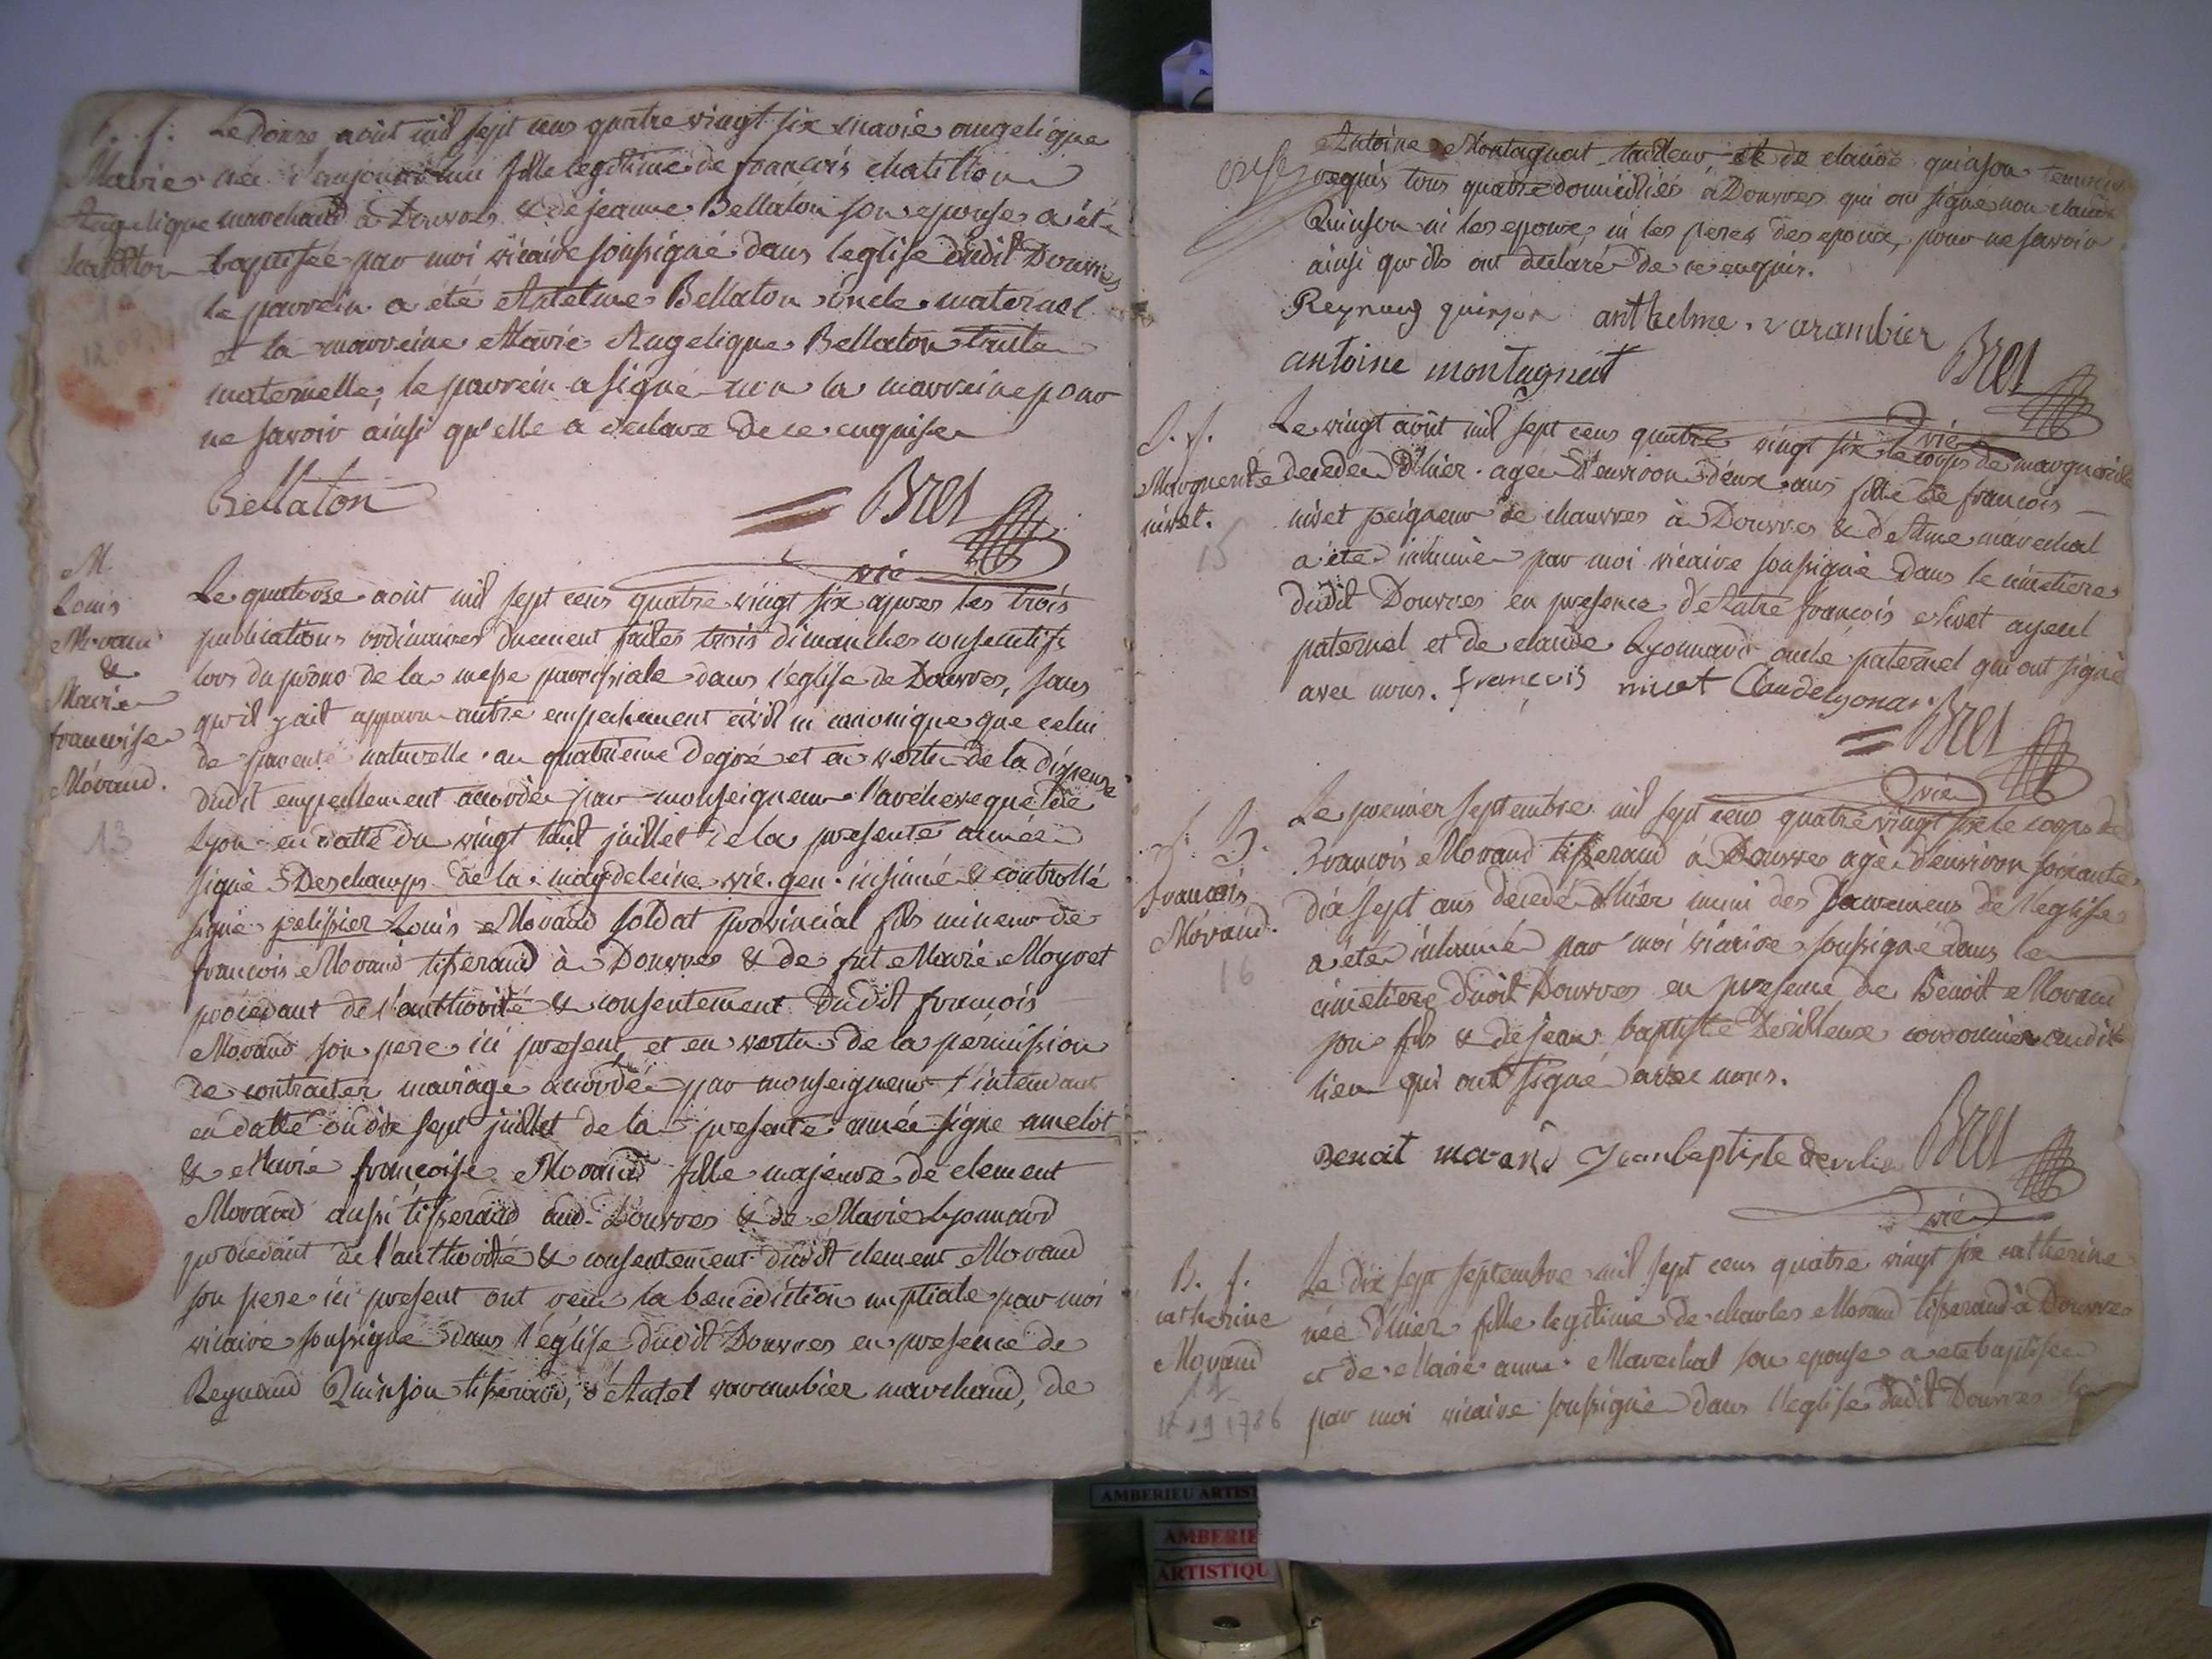 B. f.
Marie
Angelique
chatillon
Le douze août mil sept cens quatre vingt six marie angelique
née d'aujourd'hui fille legitime de françois chatillon
marchand à Douvres & de jeanne Bellaton son epouse a été
baptisée par moi vicaire soussigné dans leglise dudit Douvres
le parrein a été Antelme Bellaton oncle maternel
et la marreine Marie Angelique Bellaton tante
maternelle, le parrein a signé non la marreine pour
ne savoir ainsi qu'elle a declaré de ce enquise
Bellaton
Bret
vic
M.
Louis
Morand
&
Marie
francoise
Morand.
13
Le quatorze août mil sept cens quatre vingt six apres les trois
publications ordinaires duement faites trois dimanches consecutifs
lors du prône de la messe parroissiale dans l'église de Douvres, sans
qu'il y ait apparu autre empechement civil ni canonique que celui
de parenté naturelle au quatrieme degré et en vertu de la dispense
dudit empechement accordée par monseigneur l'archeveque de
Lyon en datte du vingt huit juillet de la presente année
signé Deschamps de la magdeleine vic. gen. insinué & controllé
signé pelissier Louis Morand soldat provincial fils mineur de
françois Morand tisserand à Douvres & de fut Marie Moyret
procedant de l'authorité & consentement dudit françois
Morand son pere ici present et en vertu de la permission
de contracter mariage accordée par monseigneur l'intendant
en datte du dix sept juillet de la presente année signé amelot
& Marie françoise Morand fille majeure de clement
Morand aussi tisserand aud. Douvres & de Marie Lyonnard
procedant de l'authorité & consentement dudit clement Morand
son pere ici present ont reçu la benediction nuptiale par moi
vicaire soussigné dans l'église dudit Douvres en presence de
Reynaud Quinson tisserand, d'Antel varambier marchand, de
Antoine Montagnat tailleur et de claude quinson temoins
requis tous quatre domiciliés à Douvres qui ont signé non claude
Quinson ni les epoux, ni les peres des epoux, pour ne savoir
ainsi qu'ils ont declaré de ce enquis.
Reynaud quinson anthelme varambier
antoine montagnat
Bret
vic
S. f.
Marguerite
nivet.
15
Le vingt août mil sept cens quatre vingt six le corps de marguerite
decedée d'hier agée d'environ deux ans fille de françois
nivet peigneur de chanvres à Douvres & d'Anne marechal
a été inhumée par moi vicaire soussigné dans le cimetiere
dudit Douvres en presence d'autre françois Nivet ayeul
paternel et de claude Lyonnard oncle paternel qui ont signé
avec nous. françois nivet Claude lyonar
Bret
vic
françois
Morand.
16
Le premier septembre mil sept cens quatre vingt six le corps de
françois Morand tisserand à Douvres agé d'environ soixante
dix sept ans decedé d'hier muni des sacremens de l'eglise
a été inhumé par moi vicaire soussigné dans le
cimetiere dudit Douvres en presence de Benoit Morand
son fils & de jean baptiste Dervieux cordonnier audit
lieu qui ont signé avec nous.
Benoit morand Jean baptiste
Bret
vic
B. f.
catherine
Morand
17 09 1786
Le dix sept septembre mil sept cens quatre vingt six catherine
née d'hier fille legitime de charles Morand tisserand à Douvres
et de Marie anne Marechal son epouse a eté baptisée
par moi vicaire soussigné dans l'eglise dudit Douvres le
AMBERIEU ARTIST
AMBERIE
ARTISTIQU